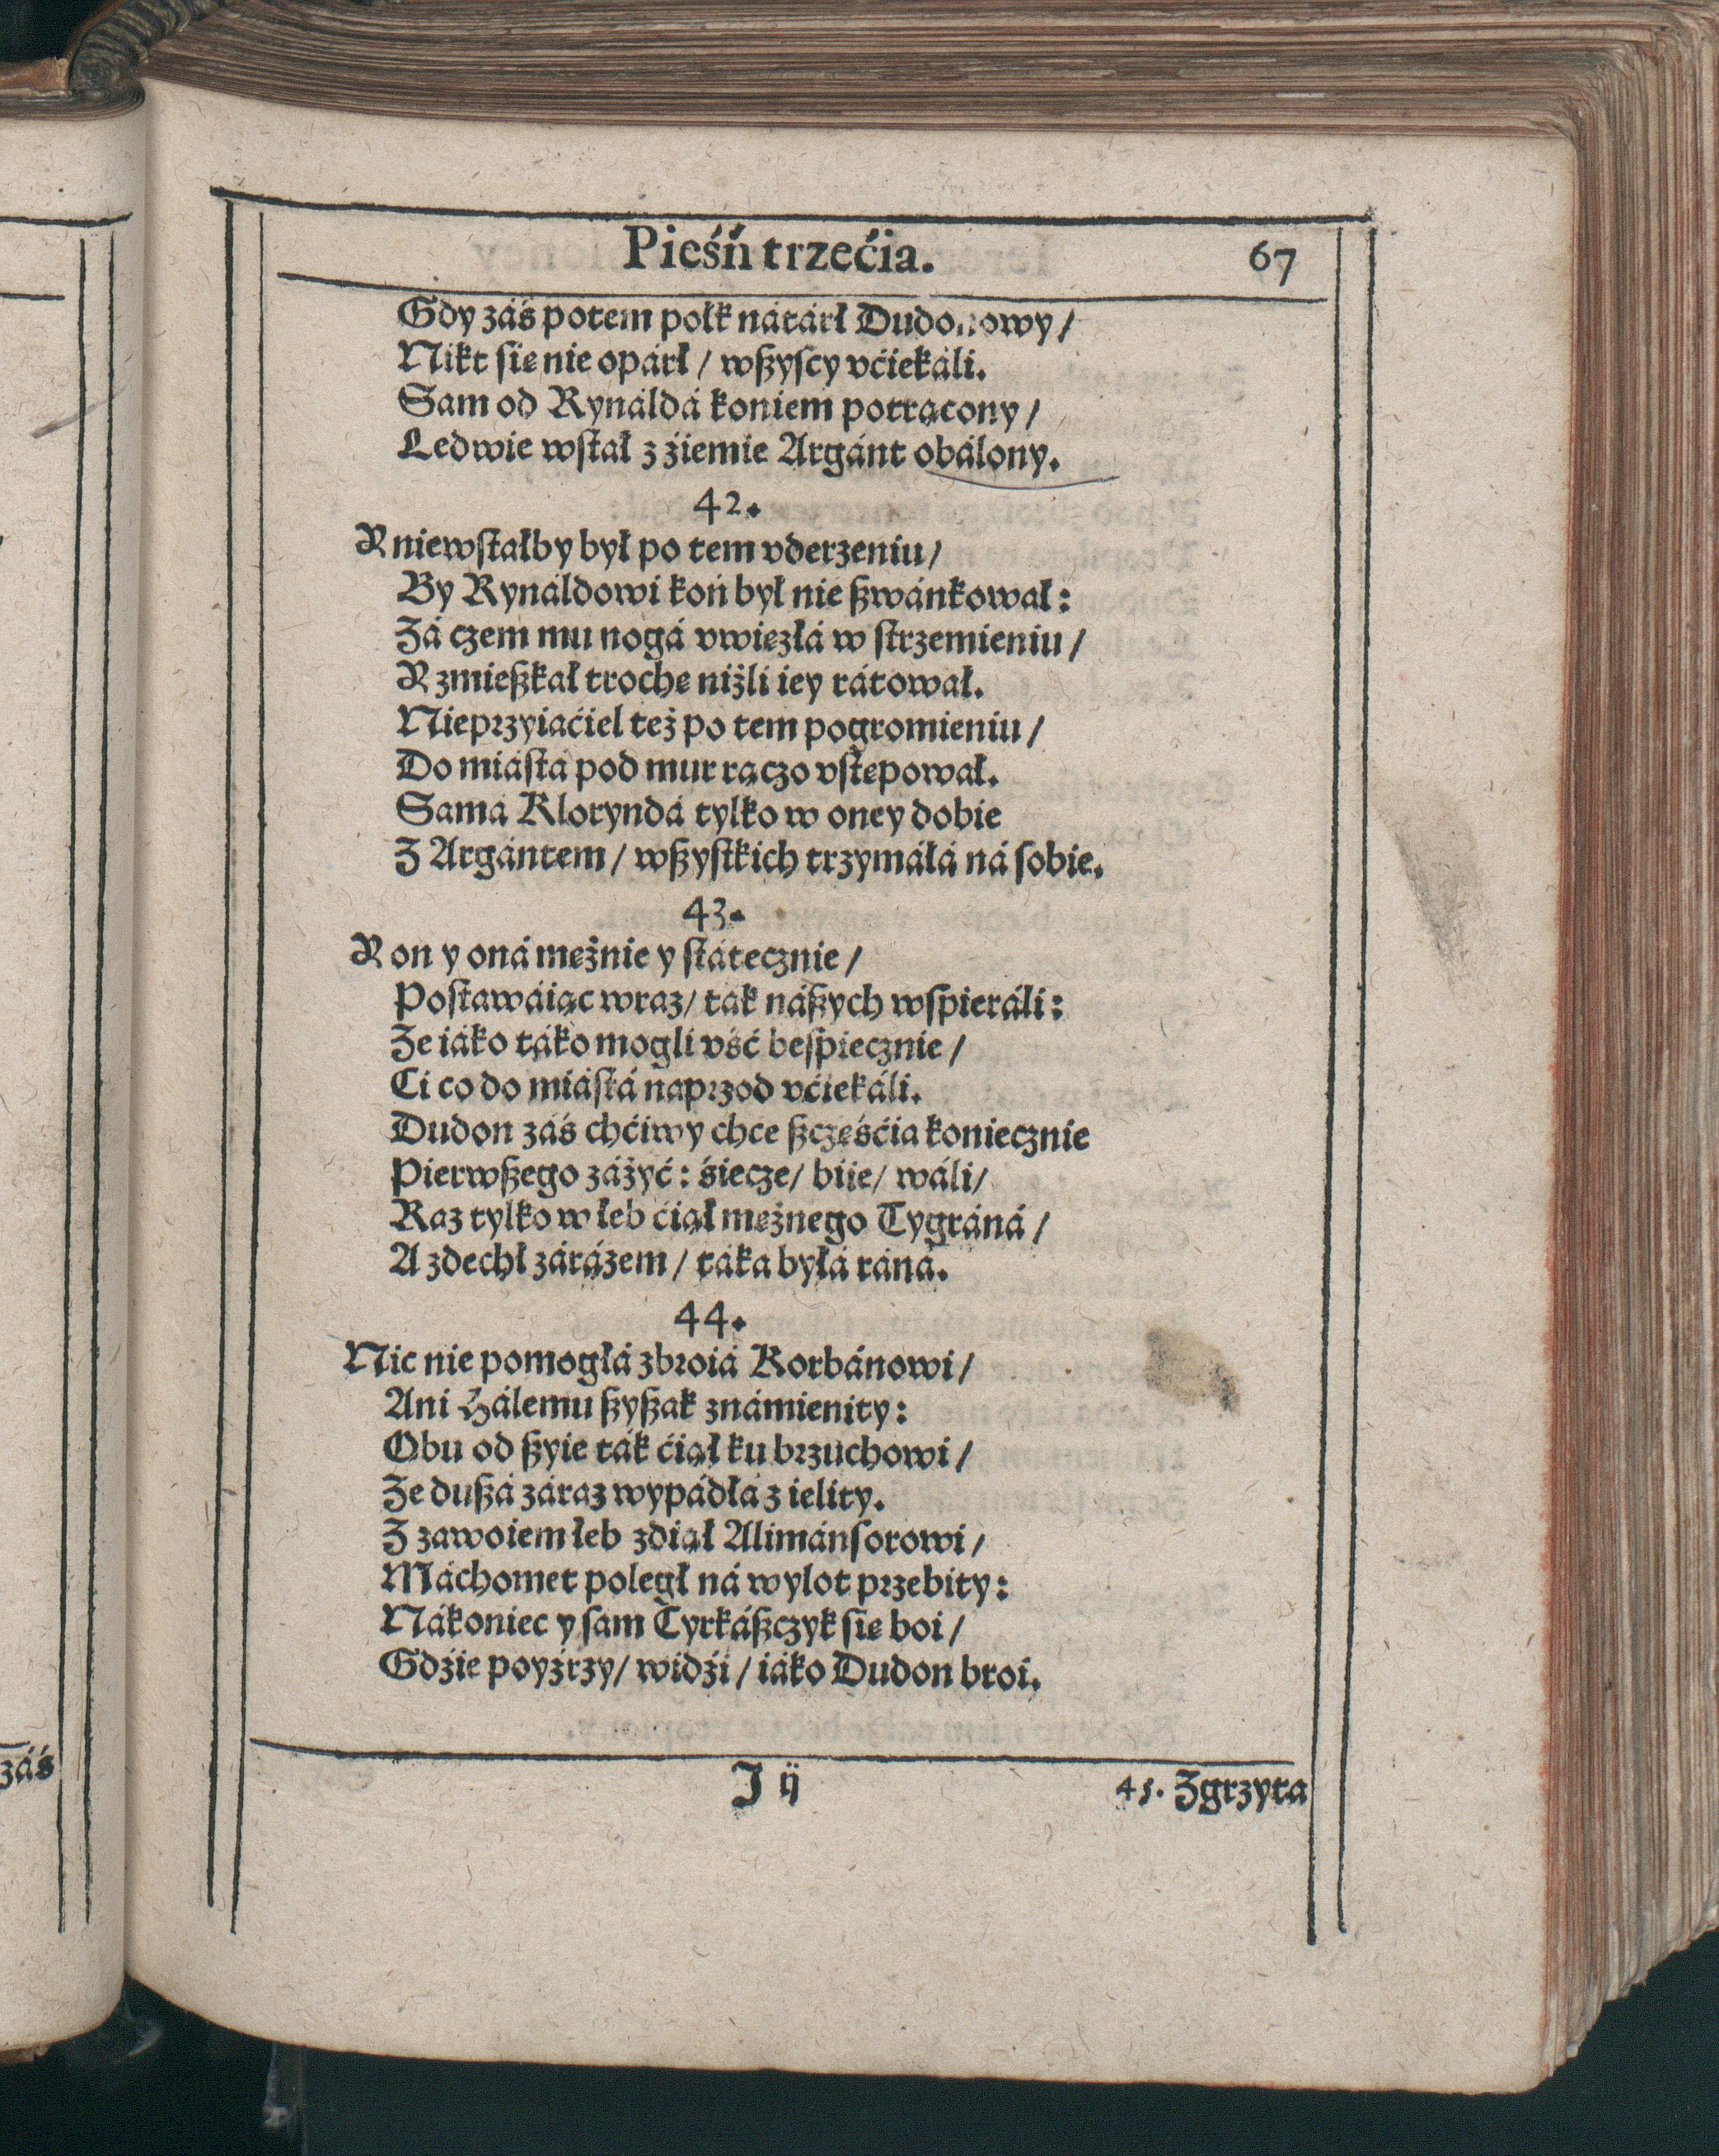 Pieśń trzećia. 67
Gdy záś potem połk nátárł Dudonowy/
Nikt sie nie opárł/ wßyscy vćiekáli.
Sam od Rynáldá koniem potrącony/
Ledwie wstał z źiemie Argánt obálony.
42.
Y niewstałby był po tem vderzeniu/
By Rynáldowi koń był nie ßwánkował:
Zá czem mu nogá vwięzłá w strzemieniu/
Y zmießkał troche niżli iey rátował.
Nieprzyiaćiel też po tem pogromieniu/
Do miástá pod mur rączo vstępował.
Sámá Kloryndá tylko w oney dobie
Z Argántem/ wßystkich trzymáłá ná sobie.
43.
Y on y oná mężnie y státecznie/
Postawáiąc wraz/ ták náßych wspieráli:
Że iáko táko mogli vść bespiecznie/
Ci co do miástá naprzod vćiekáli.
Dudon záś chćiwy chce ßczęśćia koniecznie
Pierwßego záżyć: śiecze/ biie/ wáli/
Raz tylko w łeb ćiął mężnego Tygráná/
A zdechł zárázem/ táka byłá ráná.
44.
Nic nie pomogłá zbroiá Korbánowi/
Ani Hálemu ßyßak známienity:
Obu od ßyie ták ćiął ku brzuchowi/
Że dußá záraz wypádłá z ielity.
Z zawoiem łeb zdiął Alimánsorowi/
Máchomet poległ ná wylot przebity:
Nákoniec y sam Cyrkáßczyk sie boi/
Gdźie poyźrzy/ widźi/ iáko Dudon broi.
J ij
45. Zgrzyta
záś